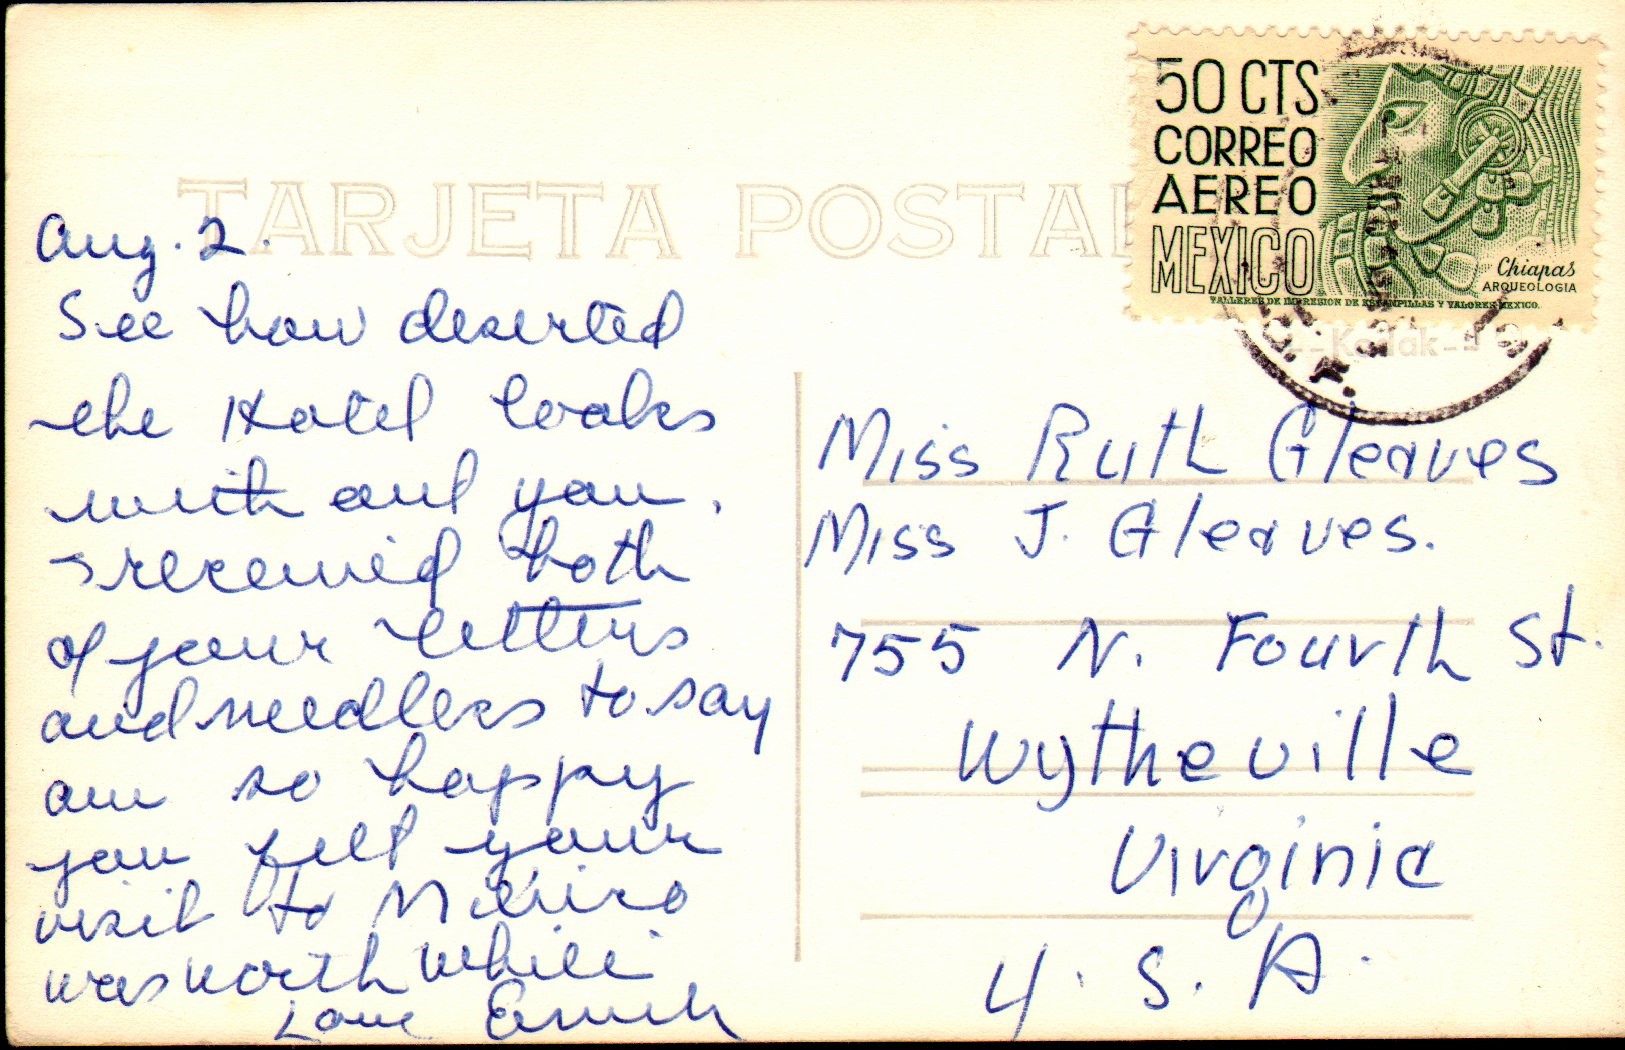 TARJETA POSTAL
50 CTS
CORREO
AEREO
MEXICO
Chiapas
ARQUEOLOGIA
TALLERES DE IMPRESION DE ESTAMPILLAS Y VALORES-MEXICO.
Kodak
D. F.
Aug. 2.
See how deserted
the Hotel looks
with out you.
I received both
of your letters
and needless to say
am so happy
you felt your
visit to Mexico
was worth while
Love
Miss Ruth Gleaves
Miss J. Gleaves.
755 N. Fourth St.
Wytheville
Virginia
U. S. A.